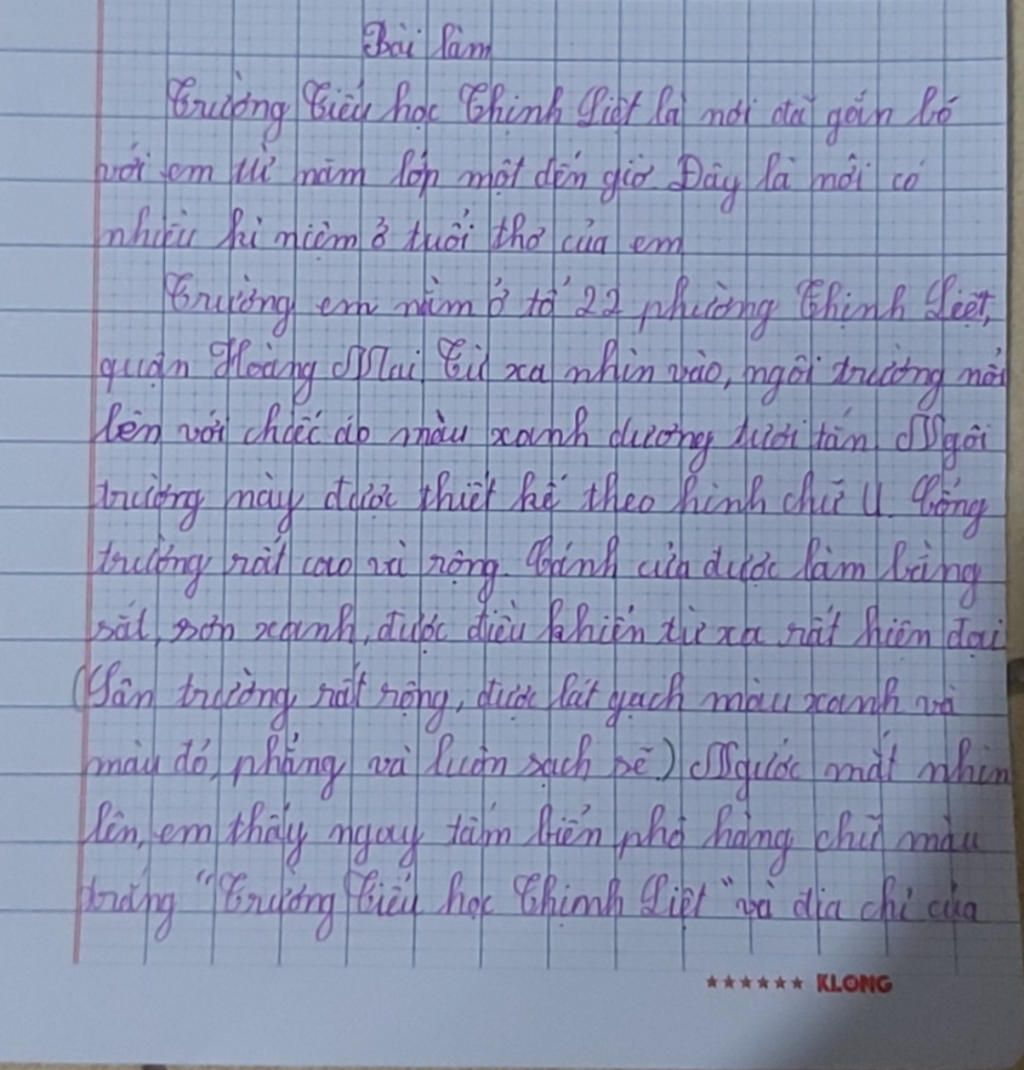 Bài làm
Trường Tiểu học Thịnh Liệt là nơi đã gắn bó
với em từ năm lớp một đến giờ Đây là nơi có
nhiều kỉ niệm ở tuổi thơ của em
Trường em nằm ở tổ 22 phường Thịnh Liệt,
quận Hoàng Mai. Từ xa nhìn vào, ngôi trường nổi
lên với chiếc áo màu xanh dương tươi tắn. Ngôi
trường này được thiết kế theo hình chữ U. Cổng
trường rất cao và rộng. Cánh cửa được làm bằng
sắt, sơn xanh, được điều khiển từ xa rất hiện đại
(Sân trường rất rộng, được lát gạch màu xanh và
màu đỏ, phẳng và luôn sạch sẽ) Ngước mắt nhìn
lên, em thấy ngay tấm biển hàng chữ màu
trắng "Trường Tiểu học Thịnh Liệt" và địa chỉ của
★★★★★★ KLONG